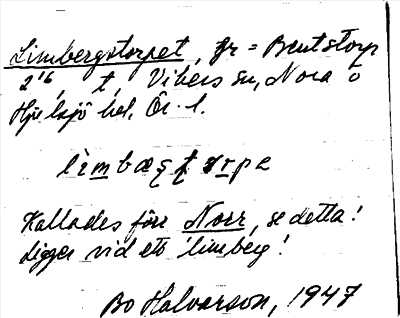 Limbergstorpet, fr = Brentstorp
2¹⁶, t, Vibers sn, Nora o
Hjulsjö hd, Ör. l.
lìmbæ̨rʂt ɤrpe
Kallades förr Norr, se detta!
Ligger vid ett "limberg"!
Bo Halvarson, 1947